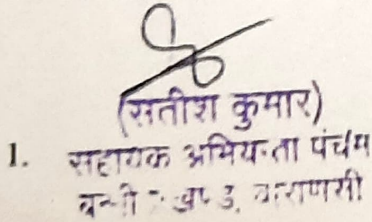 (सतीश कुमार)
1. सहायक अभियन्ता पंचम
खण्ड, वाराणसी